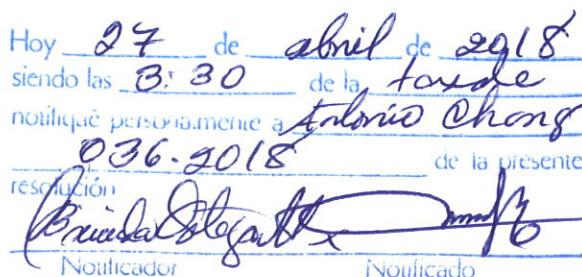 Hoy 27 de abril de 2018
siendo las 3:30 de la tarde
notifiqué personalmente a Antonio Chong
036-2018 de la presente
resolución
Notificador Notificado